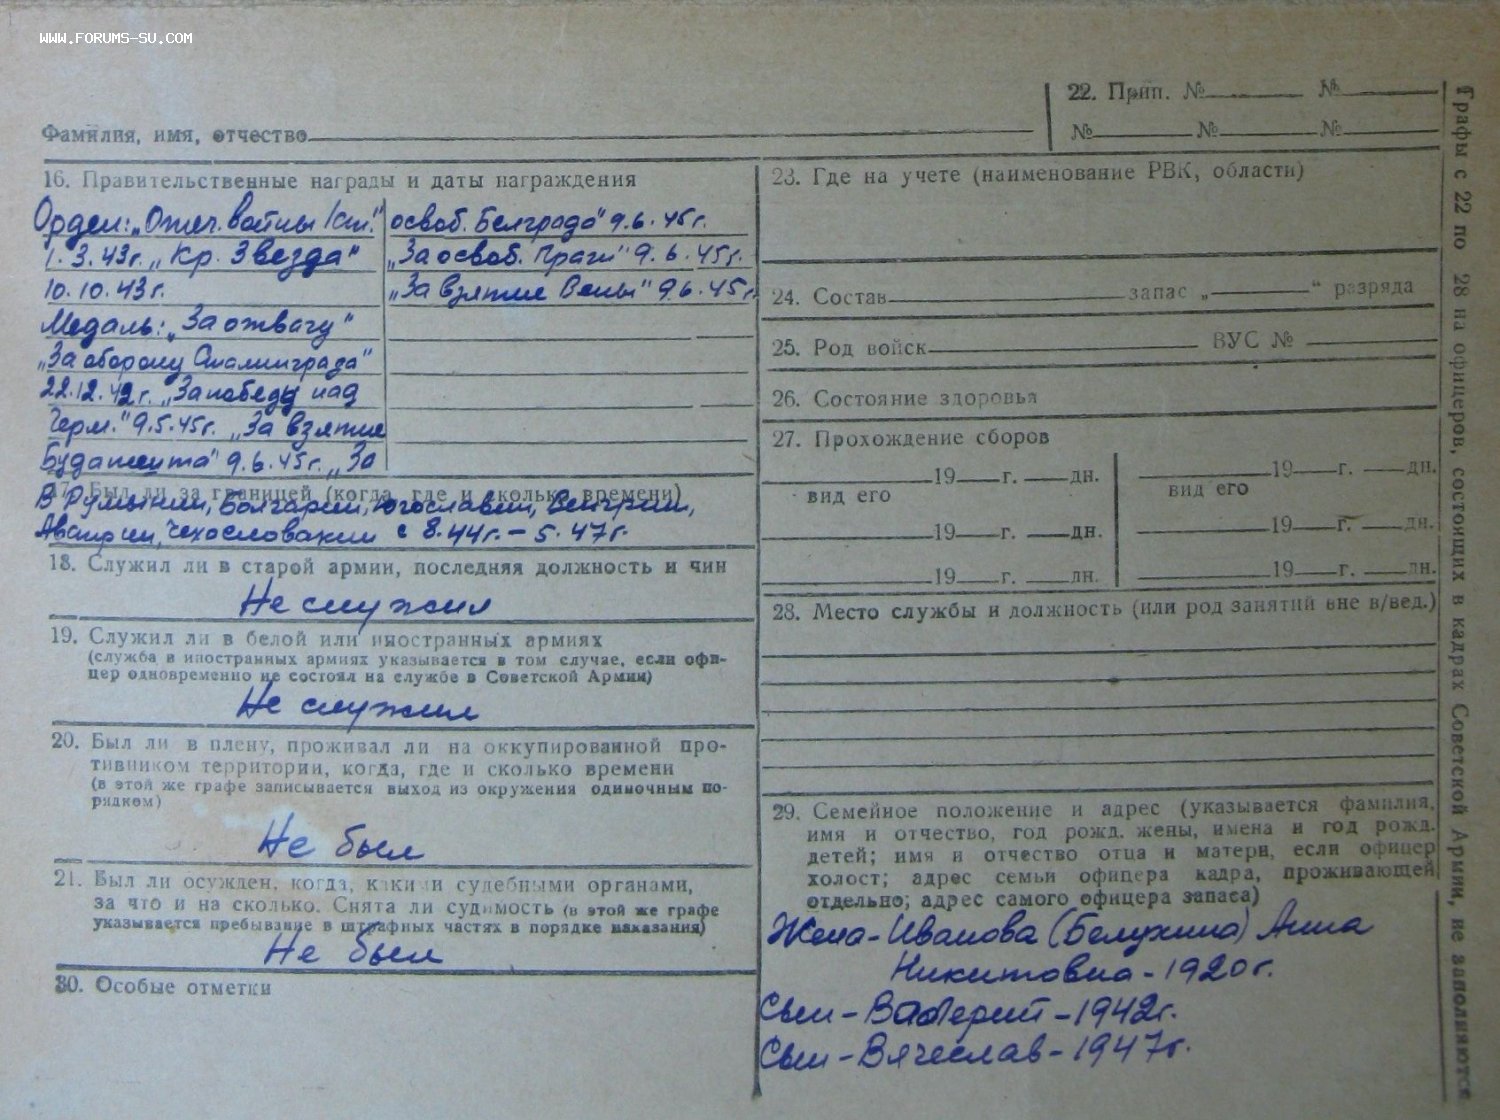 WWW.FORUMS-SU.COM
Фамилия, имя, отчество
22. Прип. № №
№ № №
16. Правительственные награды и даты награждения
Орден: „Отеч. войны 1 ст."
1.3.43г. „Кр. Звезда"
10.10.43г.
Медаль: „За отвагу"
„За оборону Сталинграда"
22.12.42г. „За победу над
Герм." 9.5.45г. „За взятие
Будапешта" 9.6.45г. „За
освоб. Белграда" 9.6.45г.
„За освоб. Праги" 9.6.45г.
„За взятие Вены" 9.6.45г.
17. Был ли за границей (когда, где и сколько времени)
В Румынии, Болгарии, Югославии, Венгрии,
Австрии, Чехословакии с 8.44г. – 5.47г.
18. Служил ли в старой армии, последняя должность и чин
Не служил
19. Служил ли в белой или иностранных армиях
(служба в иностранных армиях указывается в том случае, если офи-
цер одновременно не состоял на службе в Советской Армии)
Не служил
20. Был ли в плену, проживал ли на оккупированной про-
тивником территории, когда, где и сколько времени
(в этой же графе записывается выход из окружения одиночным по-
рядком)
Не был
21. Был ли осужден, когда, какими судебными органами,
за что и на сколько. Снята ли судимость (в этой же графе
указывается пребывание в штрафных частях в порядке наказания)
Не был
30. Особые отметки
23. Где на учете (наименование РВК, области)
24. Состав запас „ " разряда
25. Род войск ВУС №
26. Состояние здоровья
27. Прохождение сборов
19 г. дн. 19 г. дн.
вид его вид его
19 г. дн. 19 г. дн.
19 г. дн. 19 г. дн.
28. Место службы и должность (или род занятий вне в/вед.)
29. Семейное положение и адрес (указывается фамилия,
имя и отчество, год рожд. жены, имена и год рожд.
детей; имя и отчество отца и матери, если офицер
холост; адрес семьи офицера кадра, проживающей
отдельно; адрес самого офицера запаса)
Жена – Иванова (Белухина) Анна
Никитовна – 1920г.
Сын – Валерий – 1942г.
Сын – Вячеслав – 1947г.
Графы с 22 по 28 на офицеров, состоящих в кадрах Советской Армии, не заполняются